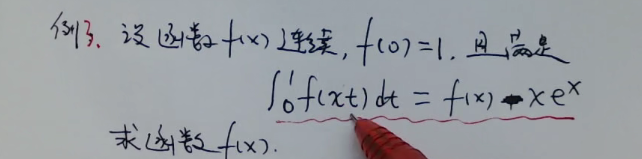 例3. 设函数f(x)连续, f(0)=1, 且满足
∫₀¹f(xt)dt = f(x) - xeˣ
求函数f(x).